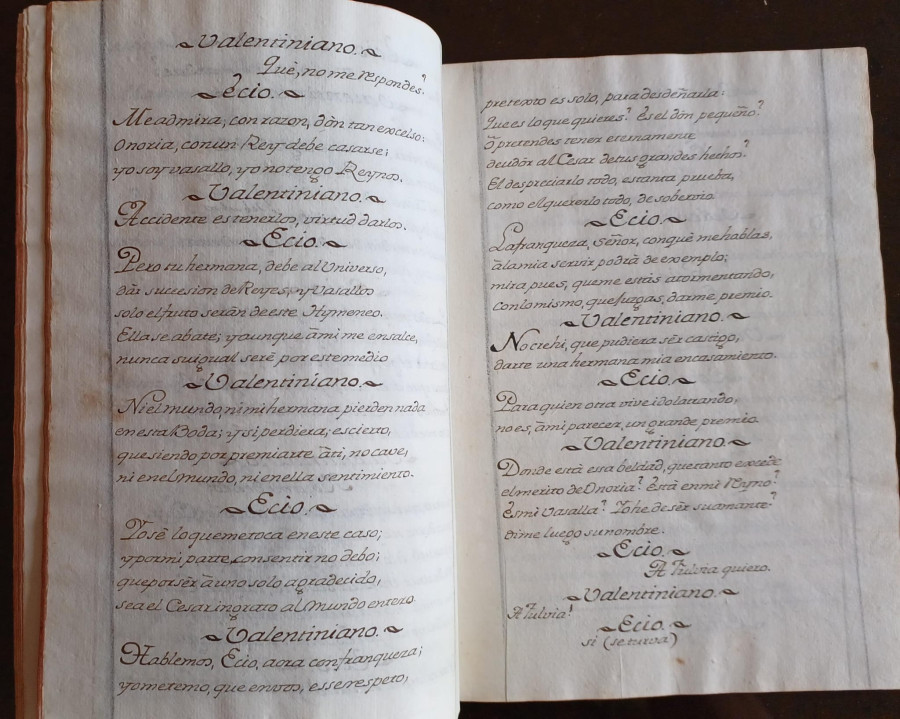 ~Valentiniano.~
Què, no me respondes?
~Ècio.~
Me admira, con razon, dòn tan excelso:
Onoria, con un Rey debe casarse;
yo soy vasallo, yo no tengo Reynos.
~Valentiniano.~
Accidente es tenerlos, virtud darlos.
~Ecio.~
Pero tu hermana, debe al Universo,
dàr succesion de Reyes, y Vasallos
solo el fruto seràn de este Hymeneo.
Ella se abate; y aunque à mi me ensalce,
nunca su igual serè por este medio
~Valentiniano.~
Ni el mundo, ni mi hermana pierden nada
en esta Boda; y si perdiera, es cierto,
que siendo por premiarte à ti, no cave,
ni en el mundo, ni en ella sentimiento.
~Ecio.~
Yo sè lo que me toca en este caso;
y por mi parte consentir no debo;
que por sèr à uno solo agradecido,
sea el Cesar ingrato al Mundo entero
~Valentiniano.~
Hablemos, Ecio, aora con franqueza;
yo me temo, que en vos, esse respeto,
pretexto es solo, para desdeñarla:
Que es lo que quieres? Es el dòn pequeño?
ò pretendes tener eternamente
deudòr al Cesar de tus grandes hechos?
El despreciarlo todo, es tanta prueba,
como el quererlo todo, de sobervio
~Ecio.~
La franqueza, Señor, con què me hablas,
à la mia servir podrà de exemplo;
mira pues, que me estàs atormentando,
Con lo mismo, que juzgas, darme premio.
~Valentiniano.~
No crehi, que pudiera sèr castigo,
darte una hermana mia en casamiento.
~Ecio.~
Para quien otra vive idolatrando,
no es, à mi parecer, un grande premio.
~Valentiniano.~
Donde està essa beldad, que tanto excede
el merito de Onoria? Està en mi Reyno?
Es mi Vasalla? Yo he de sèr su amante
dime luego su nombre.
~Ecio.~
A Fulvia quiero.
~Valentiniano.~
A Fulvia!
~Ecio.~
si (se turva)